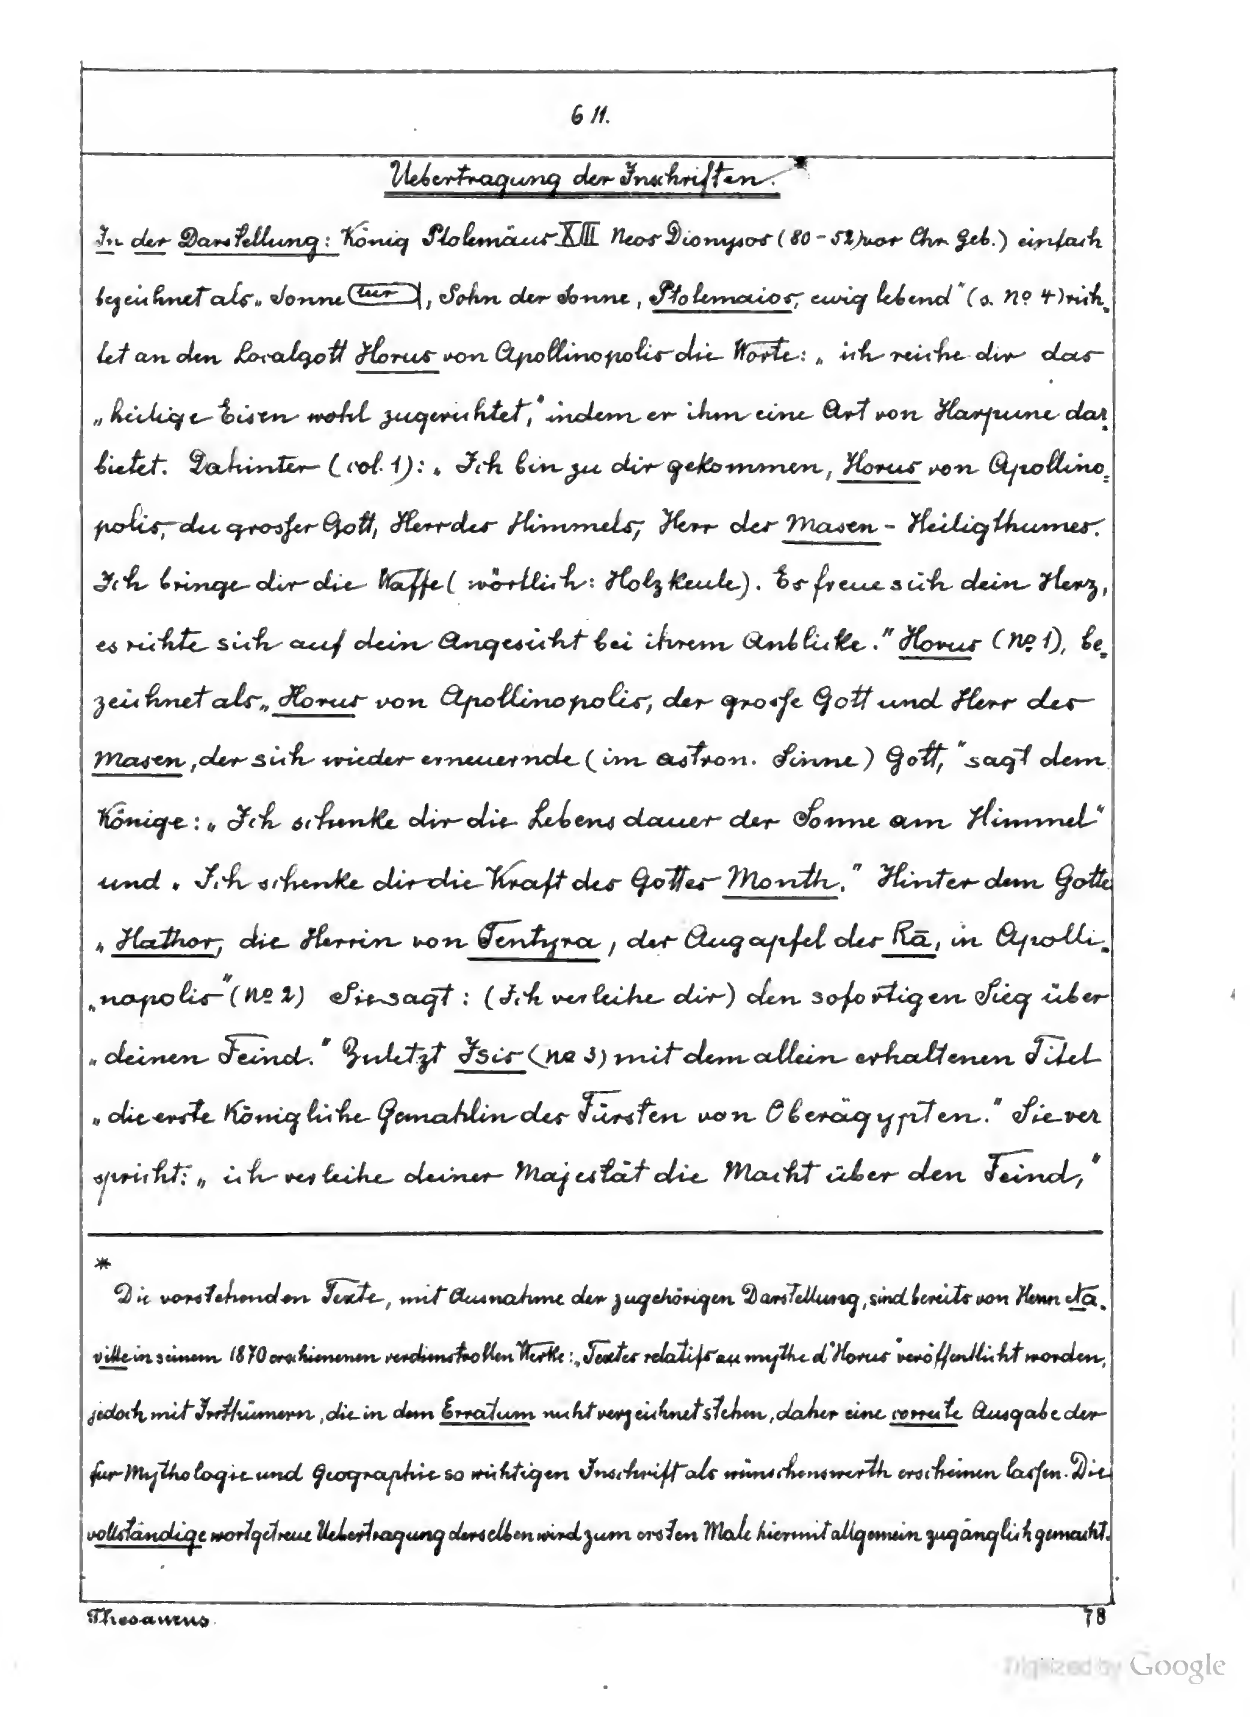 611.
Uebertragung der Inschriften.*
In der Darstellung: König Ptolemäus XIII Neos Dionysos (80-52) vor Chr. Geb.) einfach
bezeichnet als „Sonne, Sohn der Sonne, Ptolemaios, ewig lebend" (s. No 4) rich-
tet an den Localgott Horus von Apollinopolis die Worte: „ich reiche dir das
„heilige Eisen wohl zugerichtet," indem er ihm eine Art von Harpune dar-
bietet. Dahinter (col. 1): „Ich bin zu dir gekommen, Horus von Apollino-
polis, du grosser Gott, Herr des Himmels, Herr des Masen-Heiligthumes.
Ich bringe dir die Waffe (wörtlich: Holzkeule). Es freue sich dein Herz,
es richte sich auf dein Angesicht bei ihrem Anblicke." Horus (No 1), be-
zeichnet als „Horus von Apollinopolis, der grosse Gott und Herr des
Masen, der sich wieder erneuernde (im astron. Sinne) Gott," sagt dem
Könige: „Ich schenke dir die Lebensdauer der Sonne am Himmel"
und „Ich schenke dir die Kraft des Gottes Month." Hinter dem Gotte
„Hathor, die Herrin von Tentyra, der Augapfel des Rā, in Apolli-
„nopolis" (No 2) Sie sagt: (Ich verleihe dir) den sofortigen Sieg über
„deinen Feind." Zuletzt Isis (No 3) mit dem allein erhaltenen Titel
„die erste Königliche Gemahlin des Fürsten von Oberägypten." Sie ver
spricht: „ich verleihe deiner Majestät die Macht über den Feind,"
*
Die vorstehenden Texte, mit Ausnahme der zugehörigen Darstellung, sind bereits von Herrn Na-
ville in seinem 1870 erschienenen verdienstvollen Werke: „Textes relatifs au mythe d'Horus" veröffentlicht worden,
jedoch mit Irrthümern, die in dem Erratum nicht verzeichnet stehen, daher eine correcte Ausgabe der
für Mythologie und Geographie so wichtigen Inschrift als wünschenswerth erscheinen lassen. Die
vollständige wortgetreue Uebertragung derselben wird zum ersten Male hiermit allgemein zugänglich gemacht.
Thesaurus.
78
Digitized by Google